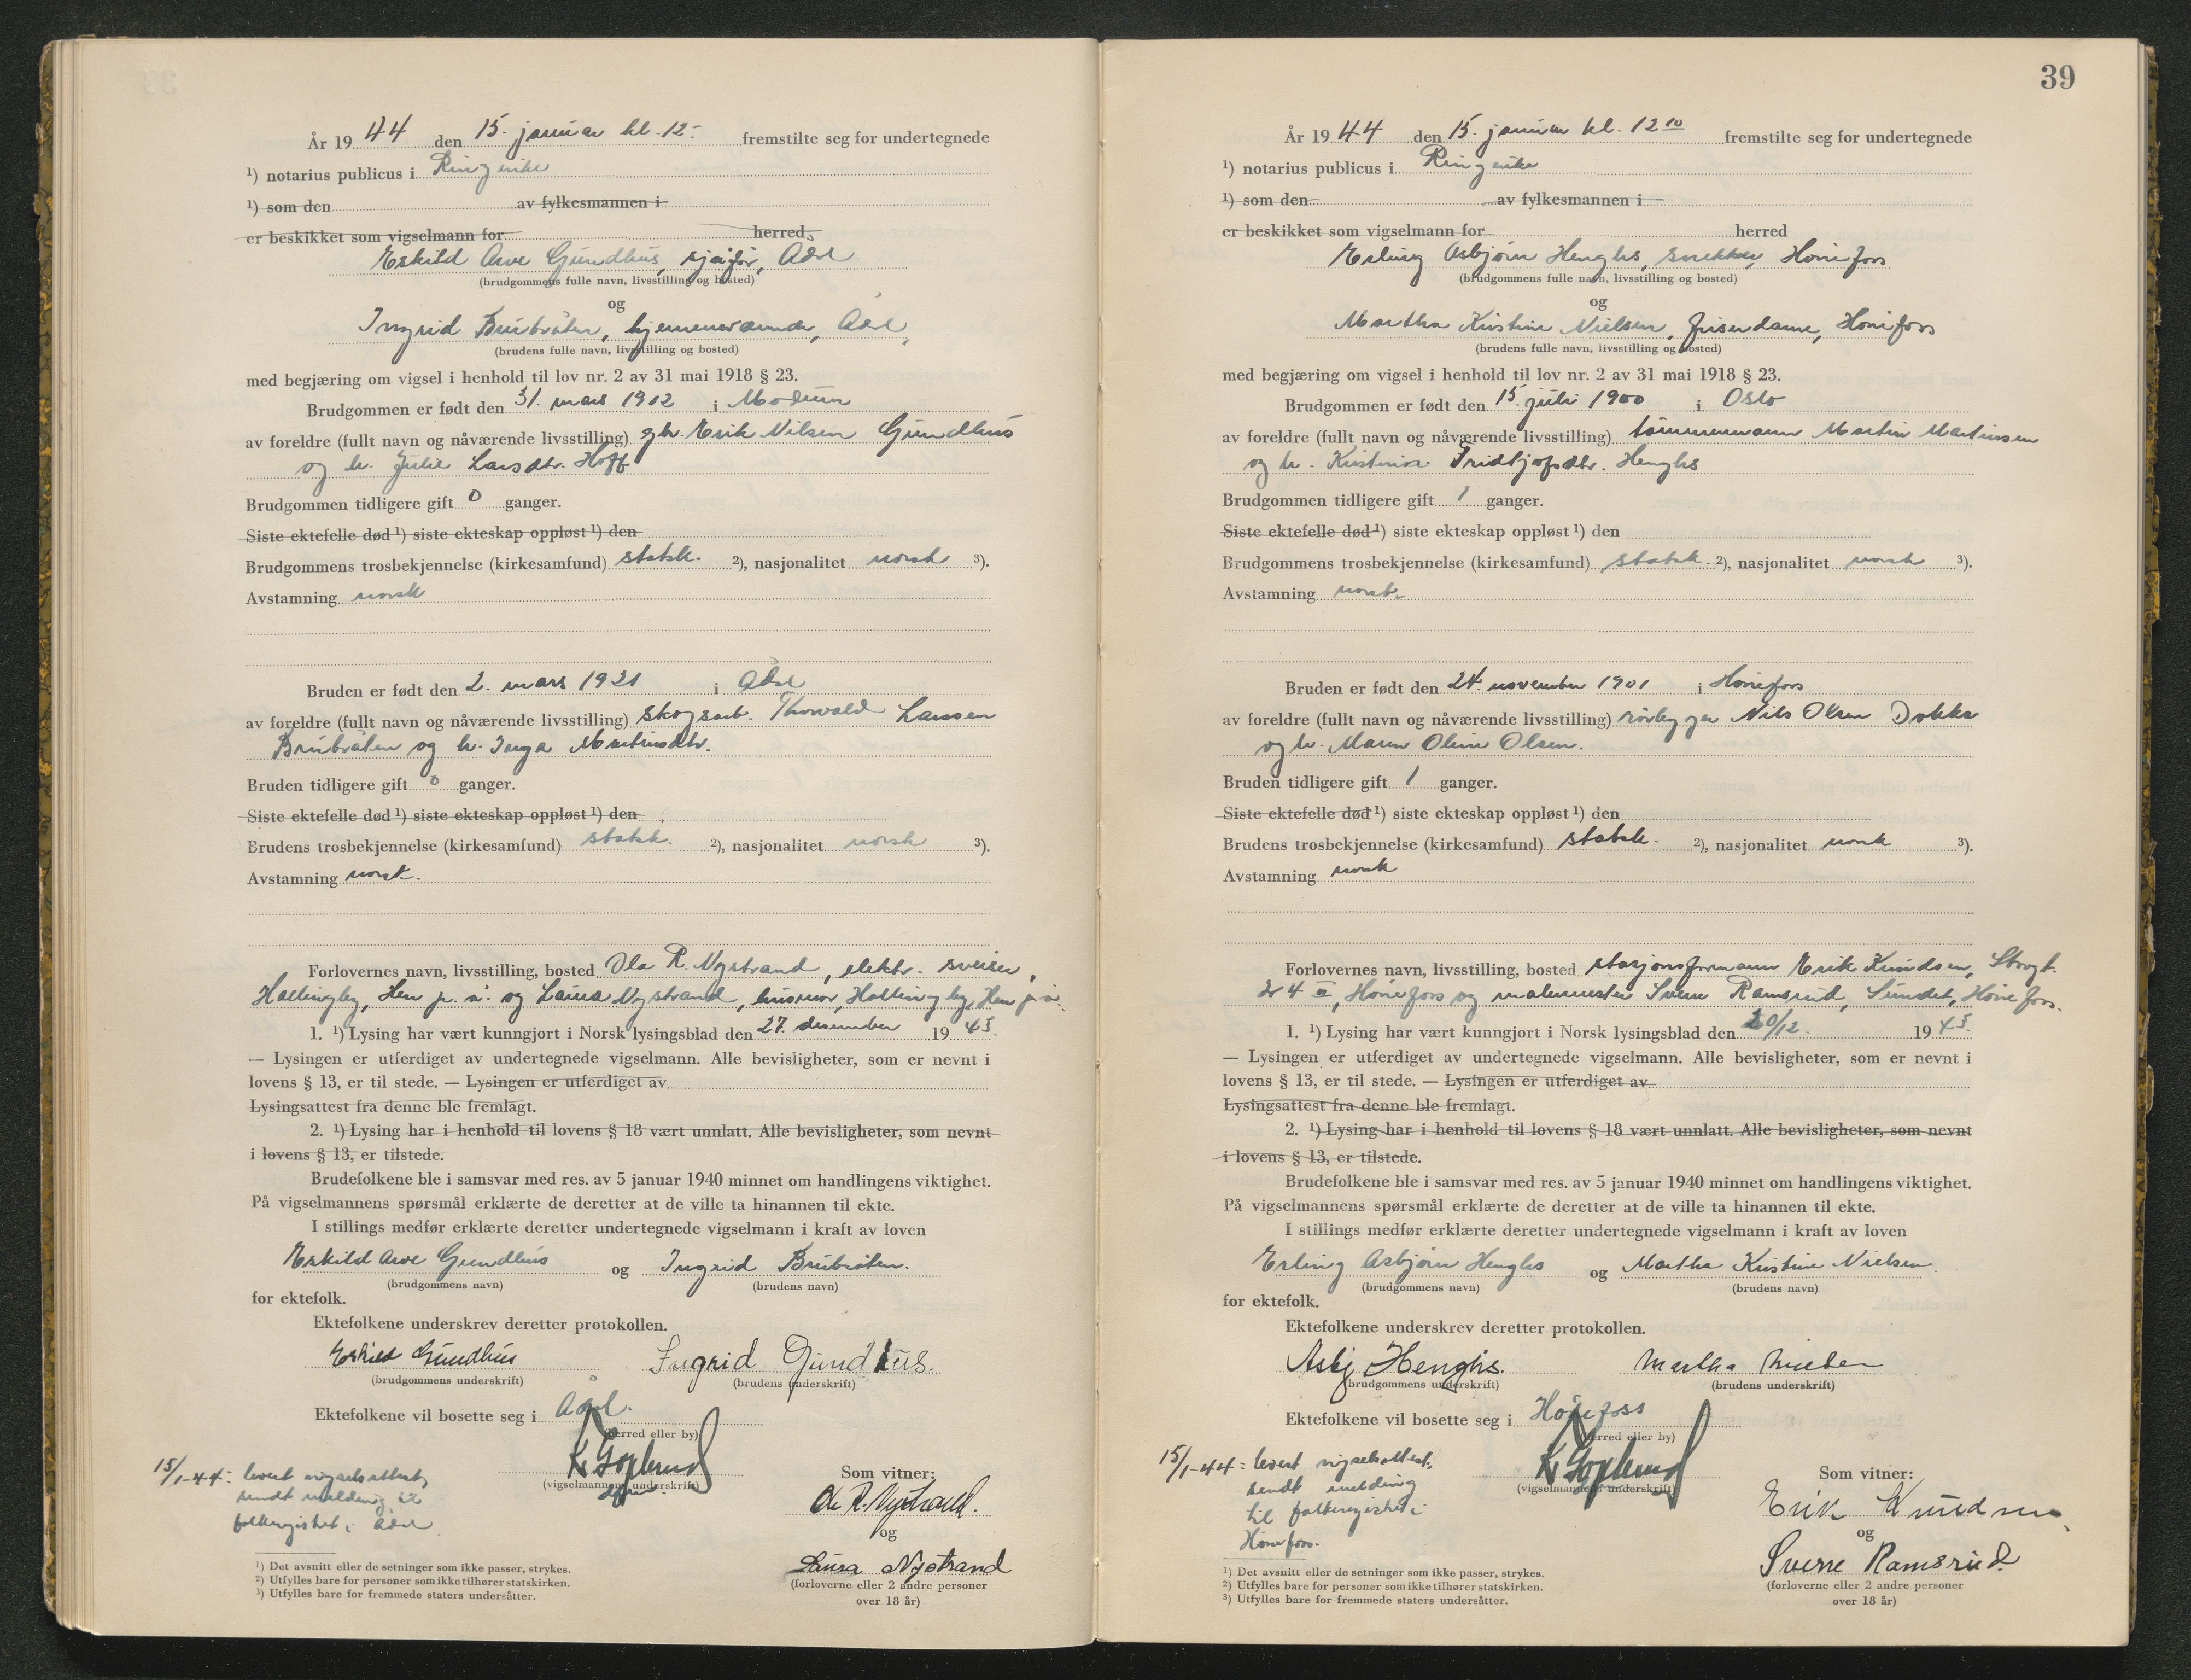 År 19 44 den 15. januar kl. 12- fremstilte seg for undertegnede
¹) notarius publicus i Ringerike
¹) som den av fylkesmannen i
er beskikket som vigselmann for herred
Eskild Arve Gundhus, sjåfør, Ådal
(brudgommens fulle navn, livsstilling og bosted)
og
Ingrid Brubråten, hjemmeværende, Ådal
(brudens fulle navn, livsstilling og bosted)
med begjæring om vigsel i henhold til lov nr. 2 av 31 mai 1918 § 23.
Brudgommen er født den 31. mars 1912 i Modum
av foreldre (fullt navn og nåværende livsstilling) gbr. Erik Nilsen Gundhus
og h. Julie Larsdtr. Hoff
Brudgommen tidligere gift 0 ganger.
Siste ektefelle død ¹) siste ekteskap oppløst ¹) den
Brudgommens trosbekjennelse (kirkesamfund) statsk. ²), nasjonalitet norsk ³).
Avstamning norsk
Bruden er født den 2. mars 1921 i Ådal
av foreldre (fullt navn og nåværende livsstilling) skogsarb. Thorvald Larssen
Brubråten og h. Inga Martinsdtr.
Bruden tidligere gift 0 ganger.
Siste ektefelle død ¹) siste ekteskap oppløst ¹) den
Brudens trosbekjennelse (kirkesamfund) statsk. ²), nasjonalitet norsk ³).
Avstamning norsk.
Forlovernes navn, livsstilling, bosted Ola R. Nystrand, elektr. sveiser,
Hallingby, Hen p. å. og Laura Nystrand, husmor, Hallingby, Hen p. å.
1. ¹) Lysing har vært kunngjort i Norsk lysingsblad den 27. desember 19 43.
— Lysingen er utferdiget av undertegnede vigselmann. Alle bevisligheter, som er nevnt i
lovens § 13, er til stede. — Lysingen er utferdiget av
Lysingsattest fra denne ble fremlagt.
2. ¹) Lysing har i henhold til lovens § 18 vært unnlatt. Alle bevisligheter, som nevnt
i lovens § 13, er tilstede.
Brudefolkene ble i samsvar med res. av 5 januar 1940 minnet om handlingens viktighet.
På vigselmannens spørsmål erklærte de deretter at de ville ta hinannen til ekte.
I stillings medfør erklærte deretter undertegnede vigselmann i kraft av loven
Eskild Arve Gundhus og Ingrid Brubråten.
(brudgommens navn) (brudens navn)
for ektefolk.
Ektefolkene underskrev deretter protokollen.
Eskild Gundhus Ingrid Gundhus.
(brudgommens underskrift) (brudens underskrift)
Ektefolkene vil bosette seg i Ådal.
(herred eller by)
(vigselmannens underskrift)
15/1-44: levert vigselsattest,
sendt melding til
folkeregistret i Ådal
Som vitner:
Ola R. Nystrand.
og
Laura Nystrand
(forloverne eller 2 andre personer
over 18 år)
¹) Det avsnitt eller de setninger som ikke passer, strykes.
²) Utfylles bare for personer som ikke tilhører statskirken.
³) Utfylles bare for fremmede staters undersåtter.
39
År 19 44 den 15. januar kl. 12 10 fremstilte seg for undertegnede
¹) notarius publicus i Ringerike
¹) som den av fylkesmannen i
er beskikket som vigselmann for herred
Erling Asbjørn Henghs, snekker, Hønefoss
(brudgommens fulle navn, livsstilling og bosted)
og
Martha Kristine Nielsen, frisørdame, Hønefoss
(brudens fulle navn, livsstilling og bosted)
med begjæring om vigsel i henhold til lov nr. 2 av 31 mai 1918 § 23.
Brudgommen er født den 15. juli 1900 i Oslo
av foreldre (fullt navn og nåværende livsstilling) tømmermann Martin Martinsen
og h. Kristina Fridtjofsdtr. Henghs
Brudgommen tidligere gift 1 ganger.
Siste ektefelle død ¹) siste ekteskap oppløst ¹) den
Brudgommens trosbekjennelse (kirkesamfund) statsk. ²), nasjonalitet norsk ³).
Avstamning norsk.
Bruden er født den 24. november 1901 i Hønefoss
av foreldre (fullt navn og nåværende livsstilling) rørlegger Nils Olsen Dokka
og h. Maren Oline Olsen.
Bruden tidligere gift 1 ganger.
Siste ektefelle død ¹) siste ekteskap oppløst ¹) den
Brudens trosbekjennelse (kirkesamfund) statsk. ²), nasjonalitet norsk ³).
Avstamning norsk
Forlovernes navn, livsstilling, bosted stasjonsformann Erik Knudsen, Storgt.
4, Hønefoss og malermester Sverre Ramsrud, Sundet, Hønefoss.
1. ¹) Lysing har vært kunngjort i Norsk lysingsblad den 20/12. 19 43.
— Lysingen er utferdiget av undertegnede vigselmann. Alle bevisligheter, som er nevnt i
lovens § 13, er til stede. — Lysingen er utferdiget av
Lysingsattest fra denne ble fremlagt.
2. ¹) Lysing har i henhold til lovens § 18 vært unnlatt. Alle bevisligheter, som nevnt
i lovens § 13, er tilstede.
Brudefolkene ble i samsvar med res. av 5 januar 1940 minnet om handlingens viktighet.
På vigselmannens spørsmål erklærte de deretter at de ville ta hinannen til ekte.
I stillings medfør erklærte deretter undertegnede vigselmann i kraft av loven
Erling Asbjørn Henghs og Martha Kristine Nielsen.
(brudgommens navn) (brudens navn)
for ektefolk.
Ektefolkene underskrev deretter protokollen.
Asbj Henghs. Martha
(brudgommens underskrift) (brudens underskrift)
Ektefolkene vil bosette seg i Hønefoss
(herred eller by)
(vigselmannens underskrift)
15/1-44: levert vigselsattest,
sendt melding
til folkeregistret i
Hønefoss.
Som vitner:
Erik Knudsen
og
Sverre Ramsrud.
(forloverne eller 2 andre personer
over 18 år)
¹) Det avsnitt eller de setninger som ikke passer, strykes.
²) Utfylles bare for personer som ikke tilhører statskirken.
³) Utfylles bare for fremmede staters undersåtter.